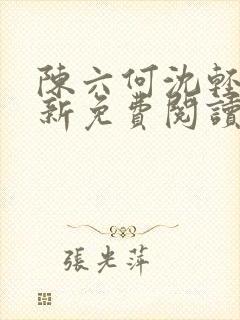 陳六何沈輕
新免費閱讀
張光萍